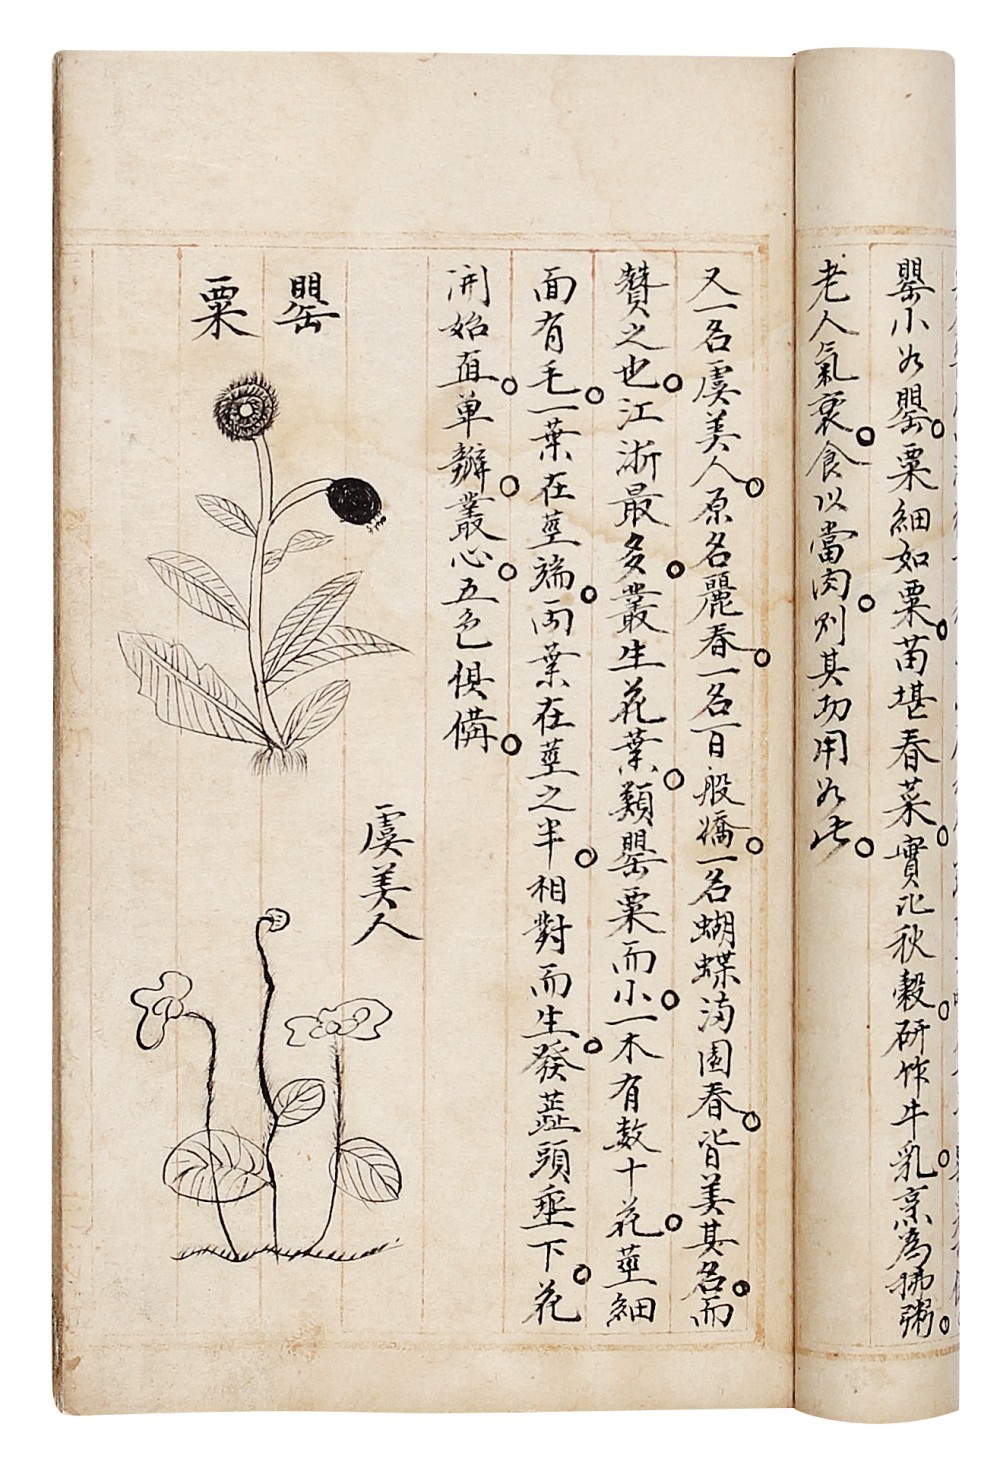 罌小如罌。粟細如粟。苗堪春菜。實比秋穀。研作牛乳。烹為拂粥。
老人氣衰。食以當肉。則其功用如此。
又一名虞美人。原名麗春。一名百般嬌。一名蝴蝶滿園春。皆美其名。而
贊之也。江浙最多。叢生花葉。類罌粟而小。一本有数十花。莖細
面有毛。一葉在莖端。両葉在莖之半。相對而生。發蕋頭垂下。花
開始直。单瓣。叢心。五色俱備。
罌
粟
虞美人